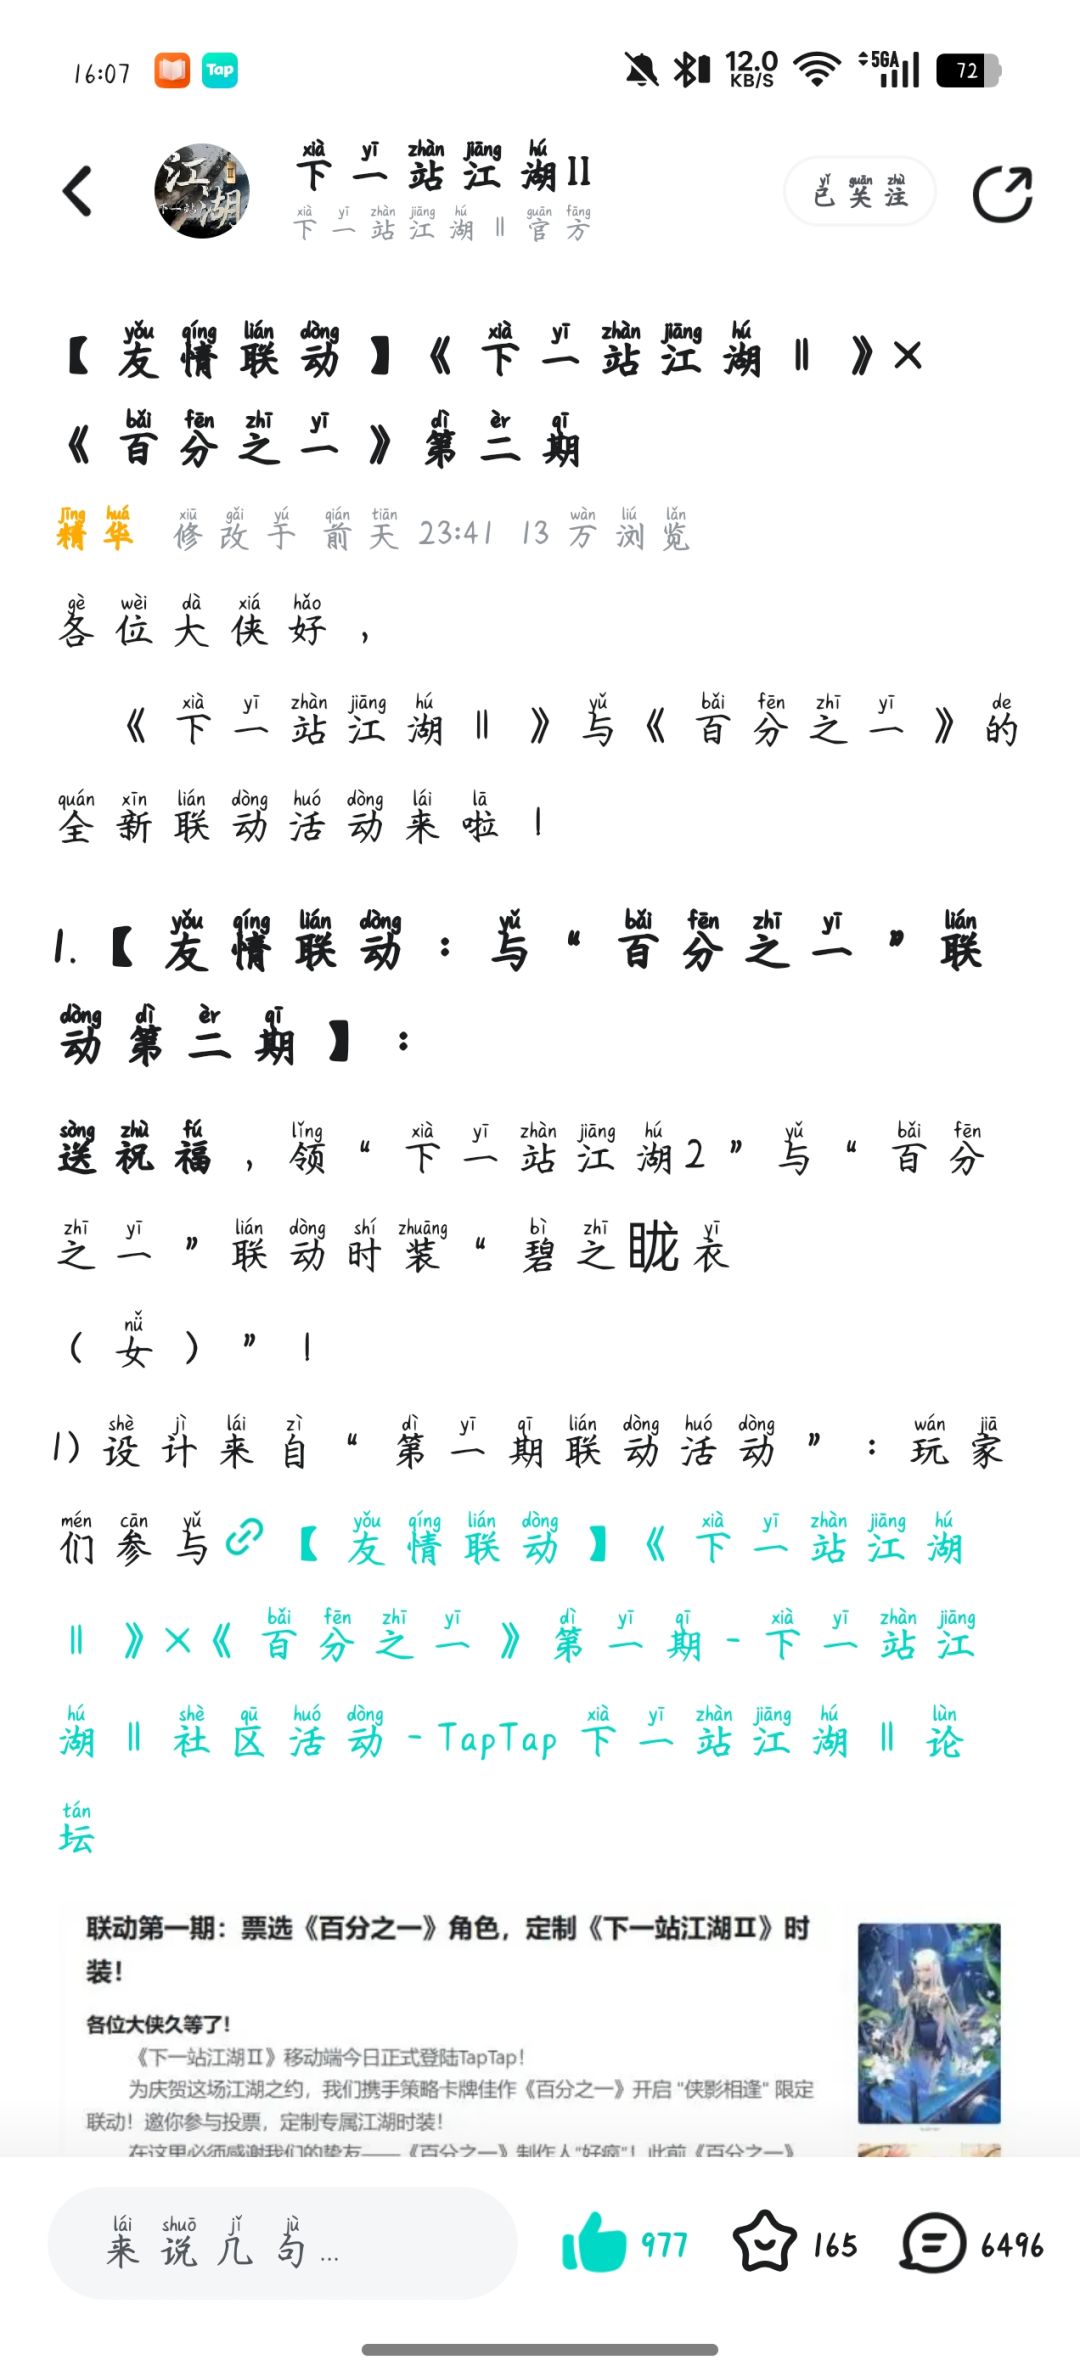 16:07 Tap 12.0 KB/S 5GA 72
下一站江湖II
下一站江湖Ⅱ官方
已关注
【友情联动】《下一站江湖Ⅱ》×
《百分之一》第二期
精华 修改于 前天 23:41 13 万浏览
各位大侠好，
《下一站江湖Ⅱ》与《百分之一》的
全新联动活动来啦！
1.【友情联动：与“百分之一”联
动第二期】：
送祝福，领“下一站江湖2”与“百分
之一”联动时装“碧之眬衣
（女）”！
1)设计来自“第一期联动活动”：玩家
们参与【友情联动】《下一站江湖
Ⅱ》×《百分之一》第一期-下一站江
湖Ⅱ社区活动-TapTap 下一站江湖Ⅱ论
坛
联动第一期：票选《百分之一》角色，定制《下一站江湖Ⅱ》时
装！
各位大侠久等了！
《下一站江湖Ⅱ》移动端今日正式登陆TapTap！
为庆贺这场江湖之约，我们携手策略卡牌佳作《百分之一》开启 "侠影相逢" 限定
联动！邀你参与投票，定制专属江湖时装！
在这里必须感谢我们的挚友——《百分之一》制作人"好疯"！此前《百分之一》
来说几句...
977 165 6496